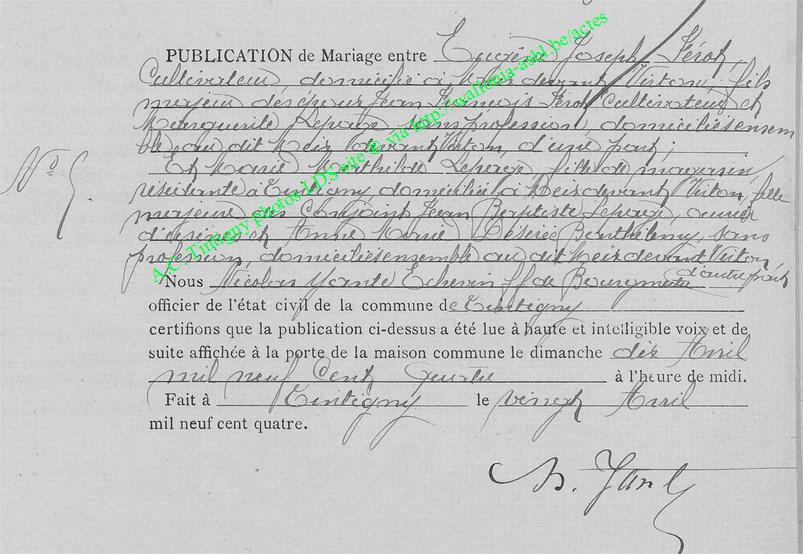 N° 5.
PUBLICATION de Mariage entre Eugène Joseph Férot,
Cultivateur, domicilié à Meix devant Virton, fils
majeur des époux Jean François Férot Cultivateur et
Marguerite Lepage sans profession, domiciliés ensem
ble au dit Meix devant Virton, d'une part;
Et Marie Mathilde Lepage, fille de magasin,
résidante à Tintigny domiciliée à Meix devant Virton, fille
majeure des Conjoints Jean Baptiste Lepage, ouvrier
d'usine et Anne Marie Désirée Berthélemy, sans
profession, domiciliés ensemble au dit Meix devant Virton
d'autre part
Nous Nicolas Yante Echevin ff de Bourgmestre
officier de l'état civil de la commune de Tintigny
certifions que la publication ci-dessus a été lue à haute et intelligible voix et de
suite affichée à la porte de la maison commune le dimanche dix Avril
mil neuf Cent quatre à l'heure de midi.
Fait à Tintigny le vingt Avril
mil neuf cent quatre.
N. Yante
A.C. Tintigny photos LDS site © via http://wallonia-asbl.be/actes